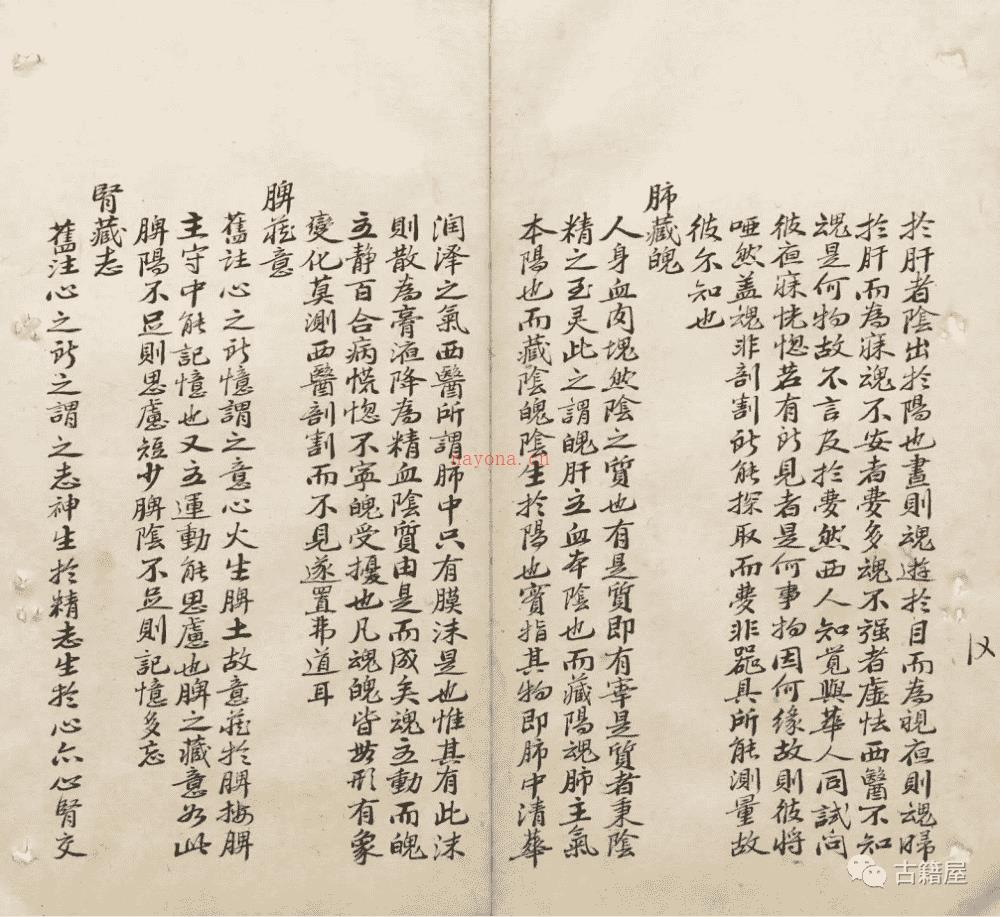 於肝者陰出於陽也晝則魂遊於目而為視夜則魂歸
於肝而為寐魂不安者夢多魂不强者虛怯西醫不知
魂是何物故不言及於夢然西人知覺與華人同試问
彼夜寐恍惚若有所見者是何事物因何緣故則彼將
啞然盖魂非剖割所能探取而夢非器具所能測量故
彼尔知也
肺藏魄
人身血肉塊然陰之質也有是質即有宰是質者秉陰
精之至灵此之謂魄肝主血本陰也而藏陽魂肺主氣
本陽也而藏陰魄陰生於陽也實指其物即肺中清華
润泽之氣西醫所謂肺中只有膜沫是也惟其有此沫
則散為膏液降為精血陰質由是而成矣魂主動而魄
主静百合病慌惚不寧魄受擾也凡魂魄皆无形有象
變化莫測西醫剖割而不見遂置弗道耳
脾藏意
舊註心之所憶謂之意心火生脾土故意藏於脾按脾
主守中能記憶也又主運動能思慮也脾之藏意如此
脾陽不足則思慮短少脾陰不足則記憶多忘
腎藏志
舊注心之所之謂之志神生於精志生於心亦心腎交
nayona.cn
古籍屋